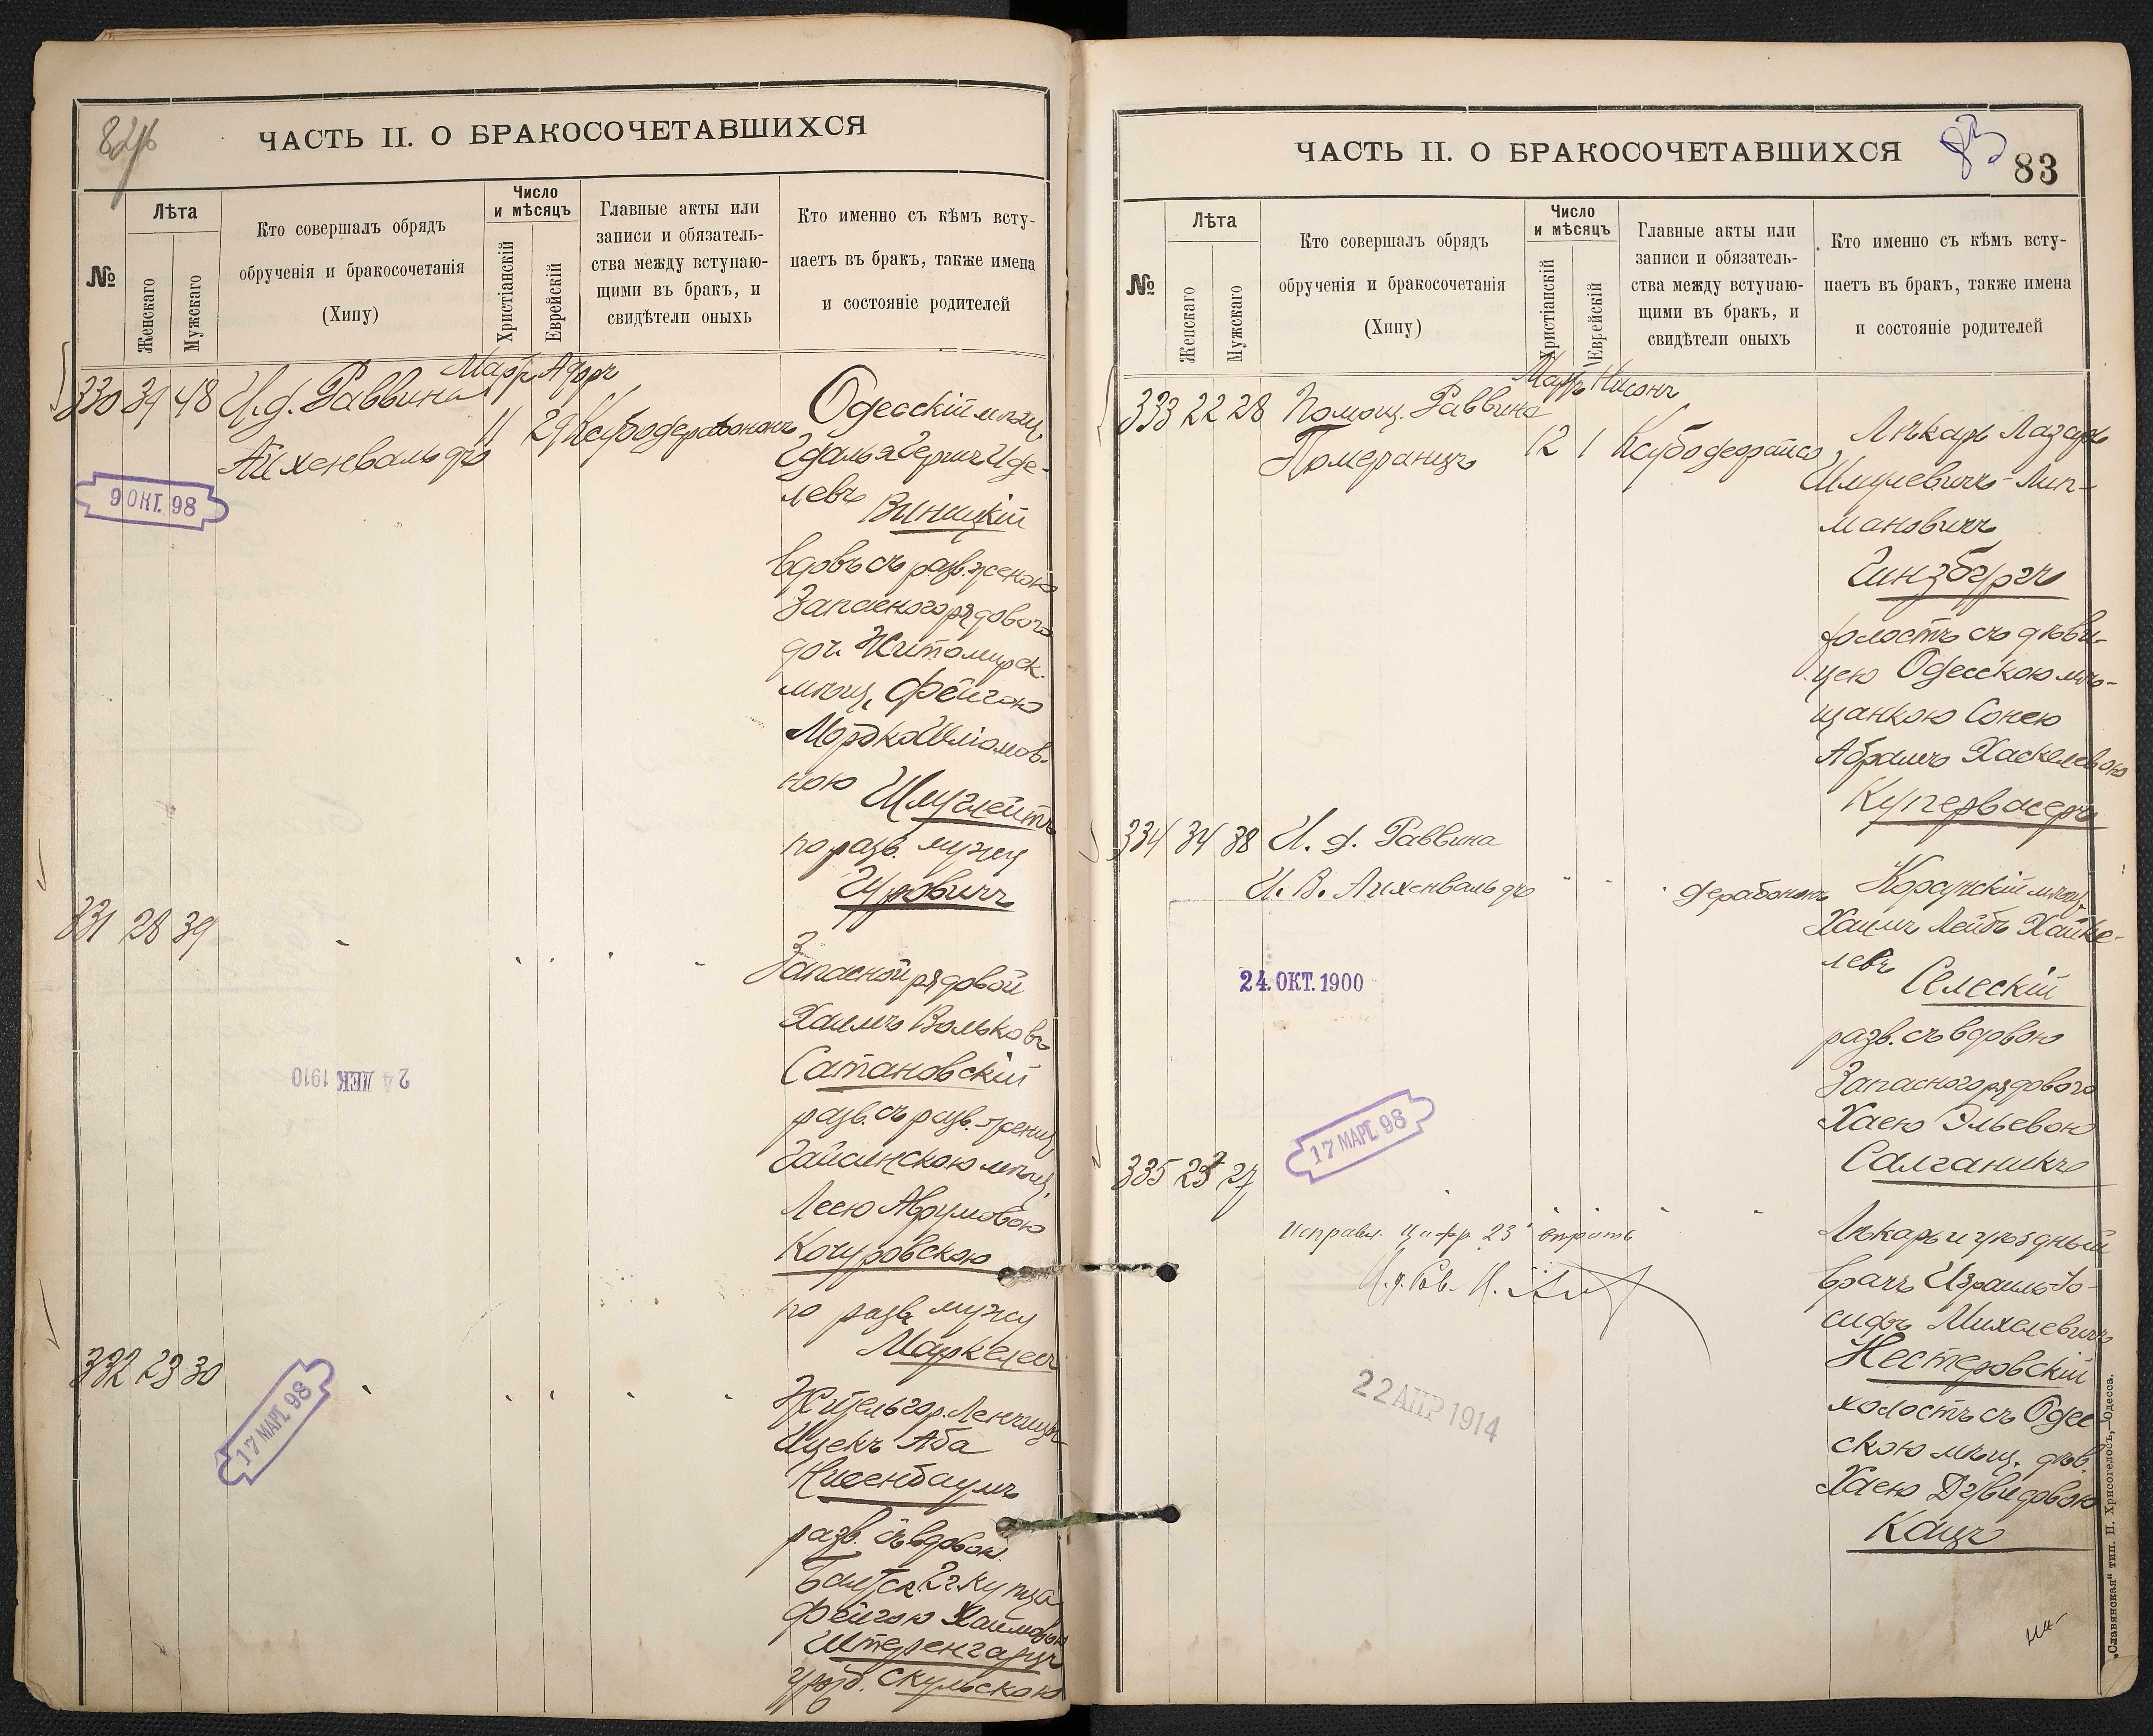 82об
ЧАСТЬ II. О БРАКОСОЧЕТАВШИХСЯ
№
Лѣта
Женскаго
Мужскаго
Кто совершалъ обрядъ
обрученія и бракосочетанія
(Хипу)
Число
и мѣсяцъ
Христіанскій
Еврейскій
Главные акты или
записи и обязатель-
ства между вступаю-
щими въ бракъ, и
свидѣтели оныхъ
Кто именно съ кѣмъ всту-
паетъ въ бракъ, также имена
и состояніе родителей
Мартъ Адоръ
330 39 48 И. д. Раввина
11 29 Ксубодерабононъ
Айхенвальдъ
9 ОКТ. 98
Одесскій мѣщ.
Гдалья Герш Иде-
левъ
Виницкій
вдовъ съ разв. женою
Запасного рядового
доч. Житомирск.
мѣщ. Фейгою
Мордко Шліомов-
ною Шмуглейтъ
по разв. мужу
Гуровичъ
331 28 39
Запасной рядовой
Хаимъ Вольковъ
Сатановскій
разв. съ разв. женщ.
Гайсинскою мѣщ.
Леею Аврумовою
Кочуровскою
по разв. мужу
Маркелесъ
24 ДЕК 1910
332 23 30
17 МАРТ. 98
Житель гор. Ленчицы
Ицекъ Аба
Нисенбаумъ
разв. съ вдовою
Балтск. 2 г. купца
Фейгою Хаимовою
Штеренгарцъ
урожд. Скульскою
83
83
ЧАСТЬ II. О БРАКОСОЧЕТАВШИХСЯ
№
Лѣта
Женскаго
Мужскаго
Кто совершалъ обрядъ
обрученія и бракосочетанія
(Хипу)
Число
и мѣсяцъ
Христіанскій
Еврейскій
Главные акты или
записи и обязатель-
ства между вступаю-
щими въ бракъ, и
свидѣтели оныхъ
Кто именно съ кѣмъ всту-
паетъ въ бракъ, также имена
и состояніе родителей
Мартъ Нисонъ
333 22 28 Помощ. Раввина
Померанцъ
12 1 Ксубодеорайсо
Лѣкарь Лазарь
Шмулевичъ-Лип-
мановичъ
Гинзбургъ
холостъ съ дѣви-
цею Одесскою мѣ-
щанкою Сонею
Абрамъ Хаскелевою
Купервасеръ
334 34 38 И. д. Раввина
И. В. Айхенвальдъ
дерабононъ
Корсунскій мѣщ.
Хаимъ Лейбъ Хайке-
левъ
Селескій
разв. съ вдовою
Запасного рядового
Хаею Эльевою
Салганикъ
24. ОКТ. 1900
17 МАРТ. 98
335 23 27
Исправл. цифр 23 вѣрить
И. д. Рав.
Лѣкарь и уѣздный
врачъ Израиль-Іо-
сифъ Михелевичъ
Нестеровскій
холостъ съ Одес-
скою мѣщ. дѣв.
Хаею Давидовою
Кацъ
22 АПР 1914
„Славянская“ тип. Н. Хрисогелосъ, Одесса.